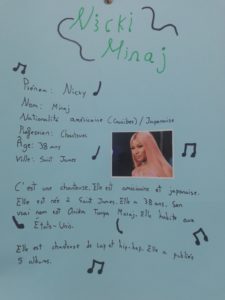 Nicki
Minaj
Prénom : Nicky
Nom : Minaj
Nationalité américaine (Caraïbes) / Japonaise
Profession : Chanteuse
Âge : 38 any
Ville : Saint James
C'est une chanteuse. Elle est américaine et japonaise.
Elle est née à Saint James. Elle a 38 any. Son
vrai nom est Onika Tanya Maraj. Elle habite aux
États-Unis.
Elle est chanteuse de rap et hip-hop. Elle a publiés
5 albums.